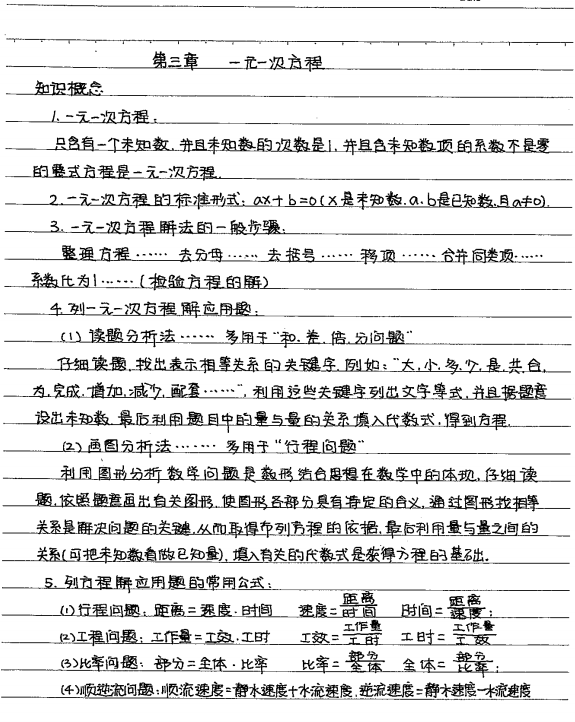 第三章 一元一次方程
知识概念
1.一元一次方程:
只含有一个未知数,并且未知数的次数是1,并且含未知数项的系数不是零
的整式方程是一元一次方程.
2.一元一次方程的标准形式:ax+b=0(x是未知数,a、b是已知数,且a≠0).
3.一元一次方程解法的一般步骤:
整理方程……去分母……去括号……移项……合并同类项……
系数化为1……(检验方程的解)
4.列一元一次方程解应用题:
(1)读题分析法……多用于“和,差,倍,分问题”
仔细读题,找出表示相等关系的关键字,例如:“大,小,多,少,是,共,合,
为,完成,增加,减少,配套……”,利用这些关键字列出文字等式,并且据题意
设出未知数,最后利用题目中的量与量的关系填入代数式,得到方程.
(2)画图分析法……多用于“行程问题”
利用图形分析数学问题是数形结合思想在数学中的体现,仔细读
题,依照题意画出有关图形,使图形各部分具有特定的含义,通过图形找相等
关系是解决问题的关键,从而取得布列方程的依据,最后利用量与量之间的
关系(可把未知数看做已知量),填入有关的代数式是获得方程的基础.
5.列方程解应用题的常用公式:
(1)行程问题:距离=速度·时间 速度=距离/时间 时间=距离/速度;
(2)工程问题:工作量=工效·工时 工效=工作量/工时 工时=工作量/工效
(3)比率问题:部分=全体·比率 比率=部分/全体 全体=部分/比率;
(4)顺逆流问题:顺流速度=静水速度+水流速度,逆流速度=静水速度-水流速度